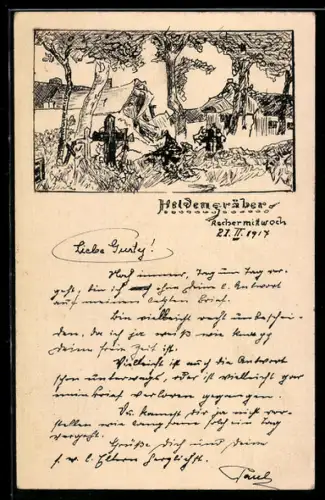 Heldengräber
Aschermittwoch
21. II. 1917
Liebe Gusty!
Noch immer, Tag um Tag ver-
geht, bin ich ohne Deine l. Antwort
auf meinen letzten Brief.
Bin vielleicht recht unbeschei-
den, da ich ja weiß wie knapp
Deine freie Zeit ist.
Vielleicht ist auch die Antwort
schon unterwegs, oder ist vielleicht gar
mein Brief verloren gegangen.
Du kannst Dir ja nicht vor-
stellen wie langsam solch ein Tag
vergeht.
Grüße Dich und Deine
l. Eltern herzlichst.
Paul